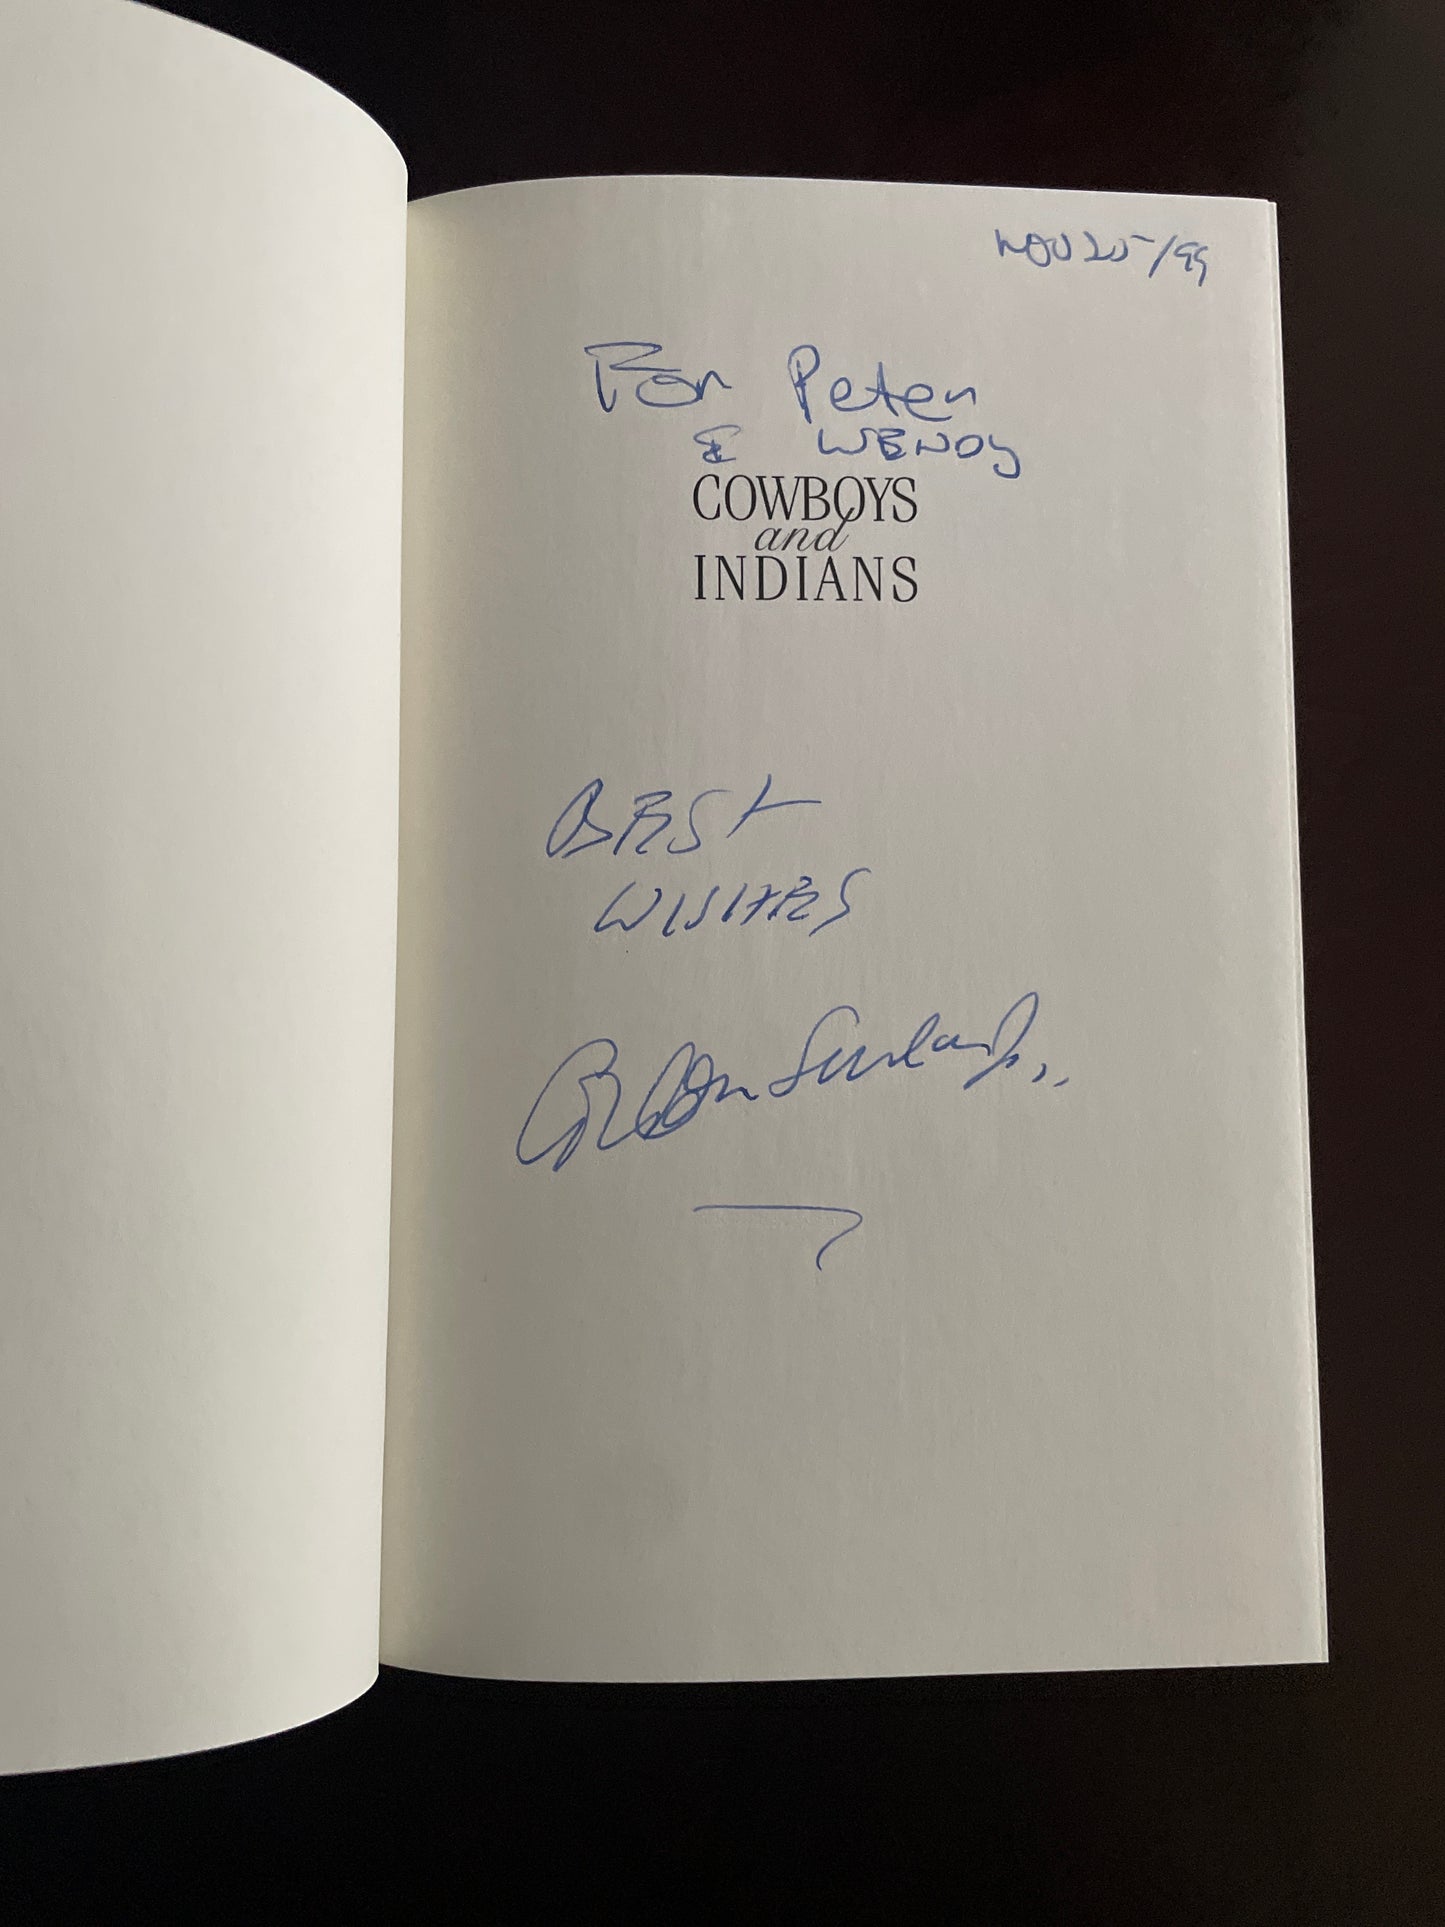 Nov 25/99
For Peter
& WENDY
COWBOYS
and
INDIANS
BEST
WISHES